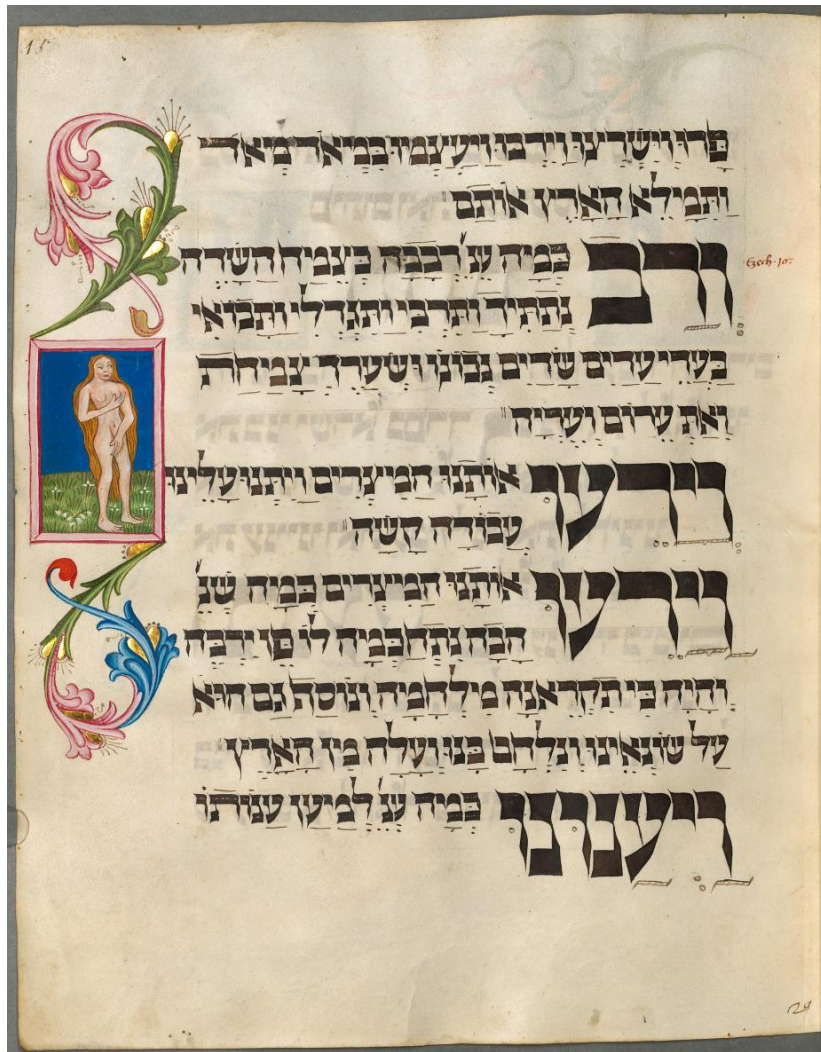 15
פרו וישרצו וירבו ויעצמו במאד מאד
ותמלא הארץ אותם
ורב כמה שנ' רבבה כצמח השדה
Ezech. 16:
נתתיך ותרבי ותגדלי ותבואי
בעדי עדים שדים נכונו ושערך צמחה
ואת ערום ועריה
וירעו אותנו המצרים ויתנו עלינו
עבודה קשה
וירעו אותנו המצרים כמה שנ'
הבה נתחכמה לו פן ירבה
והיה כי תקראנה מלחמה ונוסף גם הוא
על שונאינו ונלחם בנו ועלה מן הארץ
ויענונו כמה שנ' למען ענותו
29